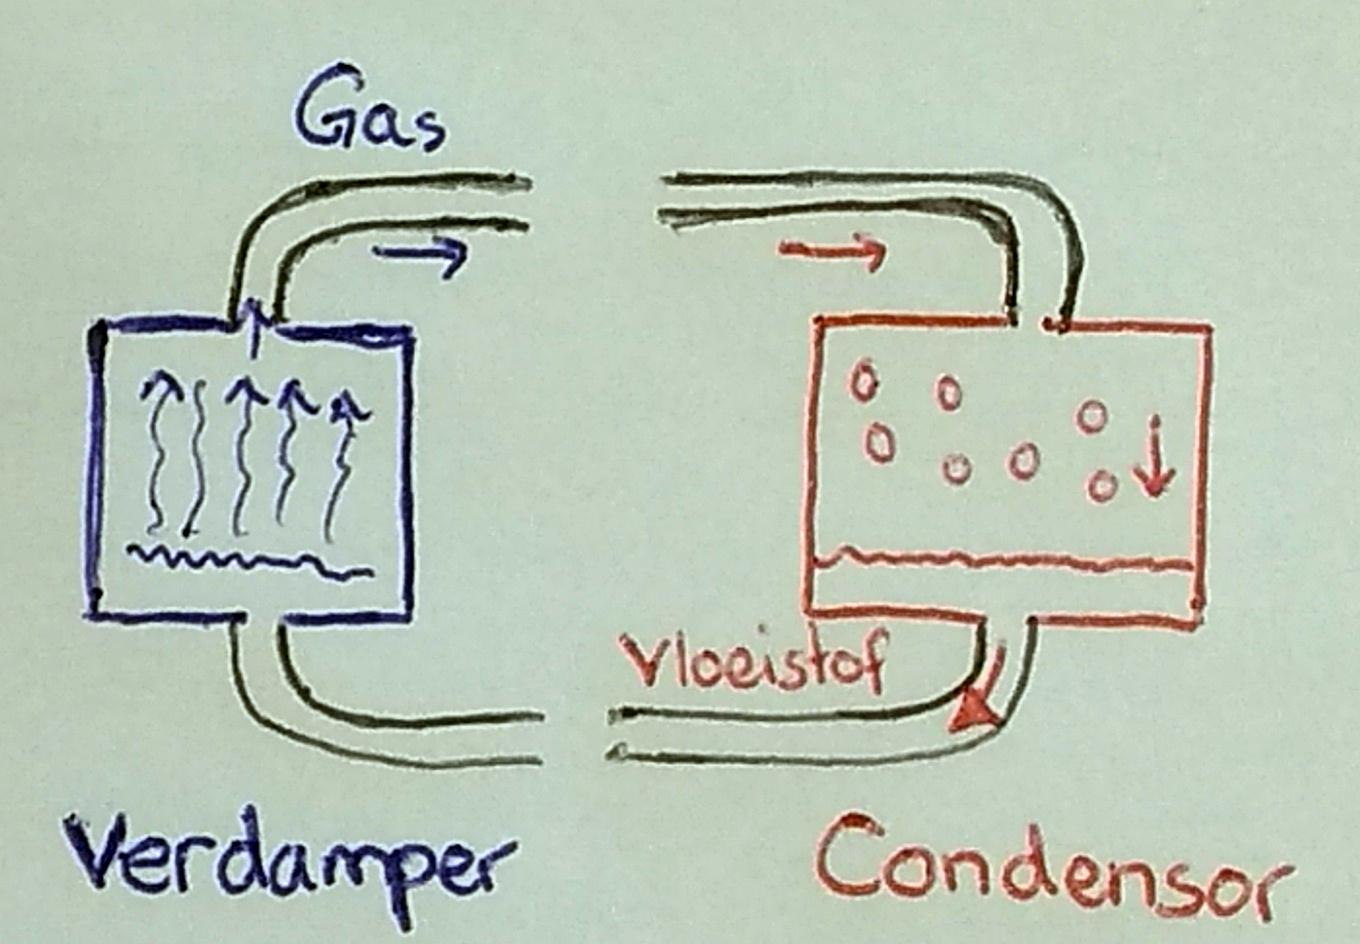 Gas
Vloeistof
Verdamper
Condensor